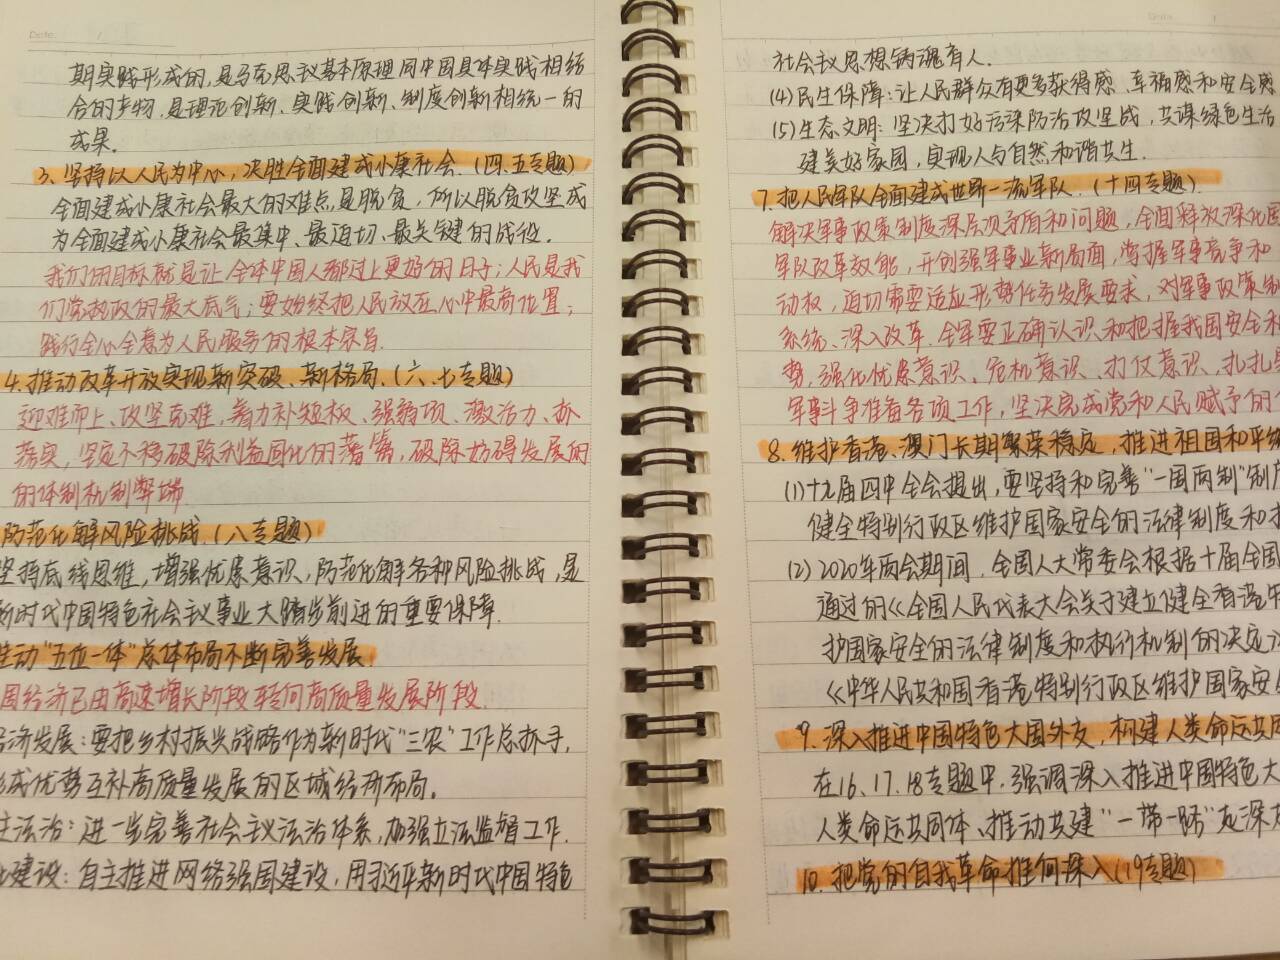 Date. /
期实践形成的,是马克思主义基本原理同中国具体实践相结
合的产物,是理论创新、实践创新、制度创新相统一的
成果.
3、坚持以人民为中心,决胜全面建成小康社会.(四、五专题)
全面建成小康社会最大的难点,是脱贫,所以脱贫攻坚成
为全面建成小康社会最集中、最迫切、最关键的战役.
我们的目标就是让全体中国人都过上更好的日子;人民是我
们党执政的最大底气;要始终把人民放在心中最高位置;
践行全心全意为人民服务的根本宗旨.
4.推动改革开放实现新突破、新格局.(六、七专题)
迎难而上、攻坚克难,着力补短板、强弱项、激活力、抓
落实,坚定不移破除利益固化的藩篱,破除妨碍发展的
的体制机制弊端
防范化解风险挑战(八专题)
坚持底线思维,增强忧患意识,防范化解各种风险挑战,是
新时代中国特色社会主义事业大踏步前进的重要保障.
推动"五位一体"总体布局不断完善发展.
国经济已由高速增长阶段转向高质量发展阶段.
经济发展:要把乡村振兴战略作为新时代"三农"工作总抓手,
形成优势互补高质量发展的区域经济布局.
主法治:进一步完善社会主义法治体系,加强立法监督工作.
建设:自主推进网络强国建设,用习近平新时代中国特色
Date. /
社会主义思想铸魂育人.
(4)民生保障:让人民群众有更多获得感、幸福感和安全感
(5)生态文明:坚决打好污染防治攻坚战,共谋绿色生活
建美好家园,实现人与自然和谐共生.
7.把人民军队全面建成世界一流军队.(十四专题).
解决军事政策制度深层次矛盾和问题,全面释放深化国
军队改革效能,开创强军事业新局面,掌握军事竞争和
动权,迫切需要适应形势任务发展要求,对军事政策制
系统、深入改革.全军要正确认识和把握我国安全和
势,强化忧患意识、危机意识、打仗意识、扎扎
军事斗争准备各项工作,坚决完成党和人民赋予的
8.维护香港、澳门长期繁荣稳定,推进祖国和平统
(1)十九届四中全会提出,要坚持和完善"一国两制"制度
健全特别行政区维护国家安全的法律制度和
(2)2020年两会期间,全国人大常委会根据十届全国
通过的《全国人民代表大会关于建立健全香港特
护国家安全的法律制度和执行机制的决定
《中华人民共和国香港特别行政区维护国家安
9.深入推进中国特色大国外交,构建人类命运共同
在16、17、18专题中,强调深入推进中国特色大
人类命运共同体、推动共建"一带一路"走深
10.把党的自我革命推向深入(19专题)